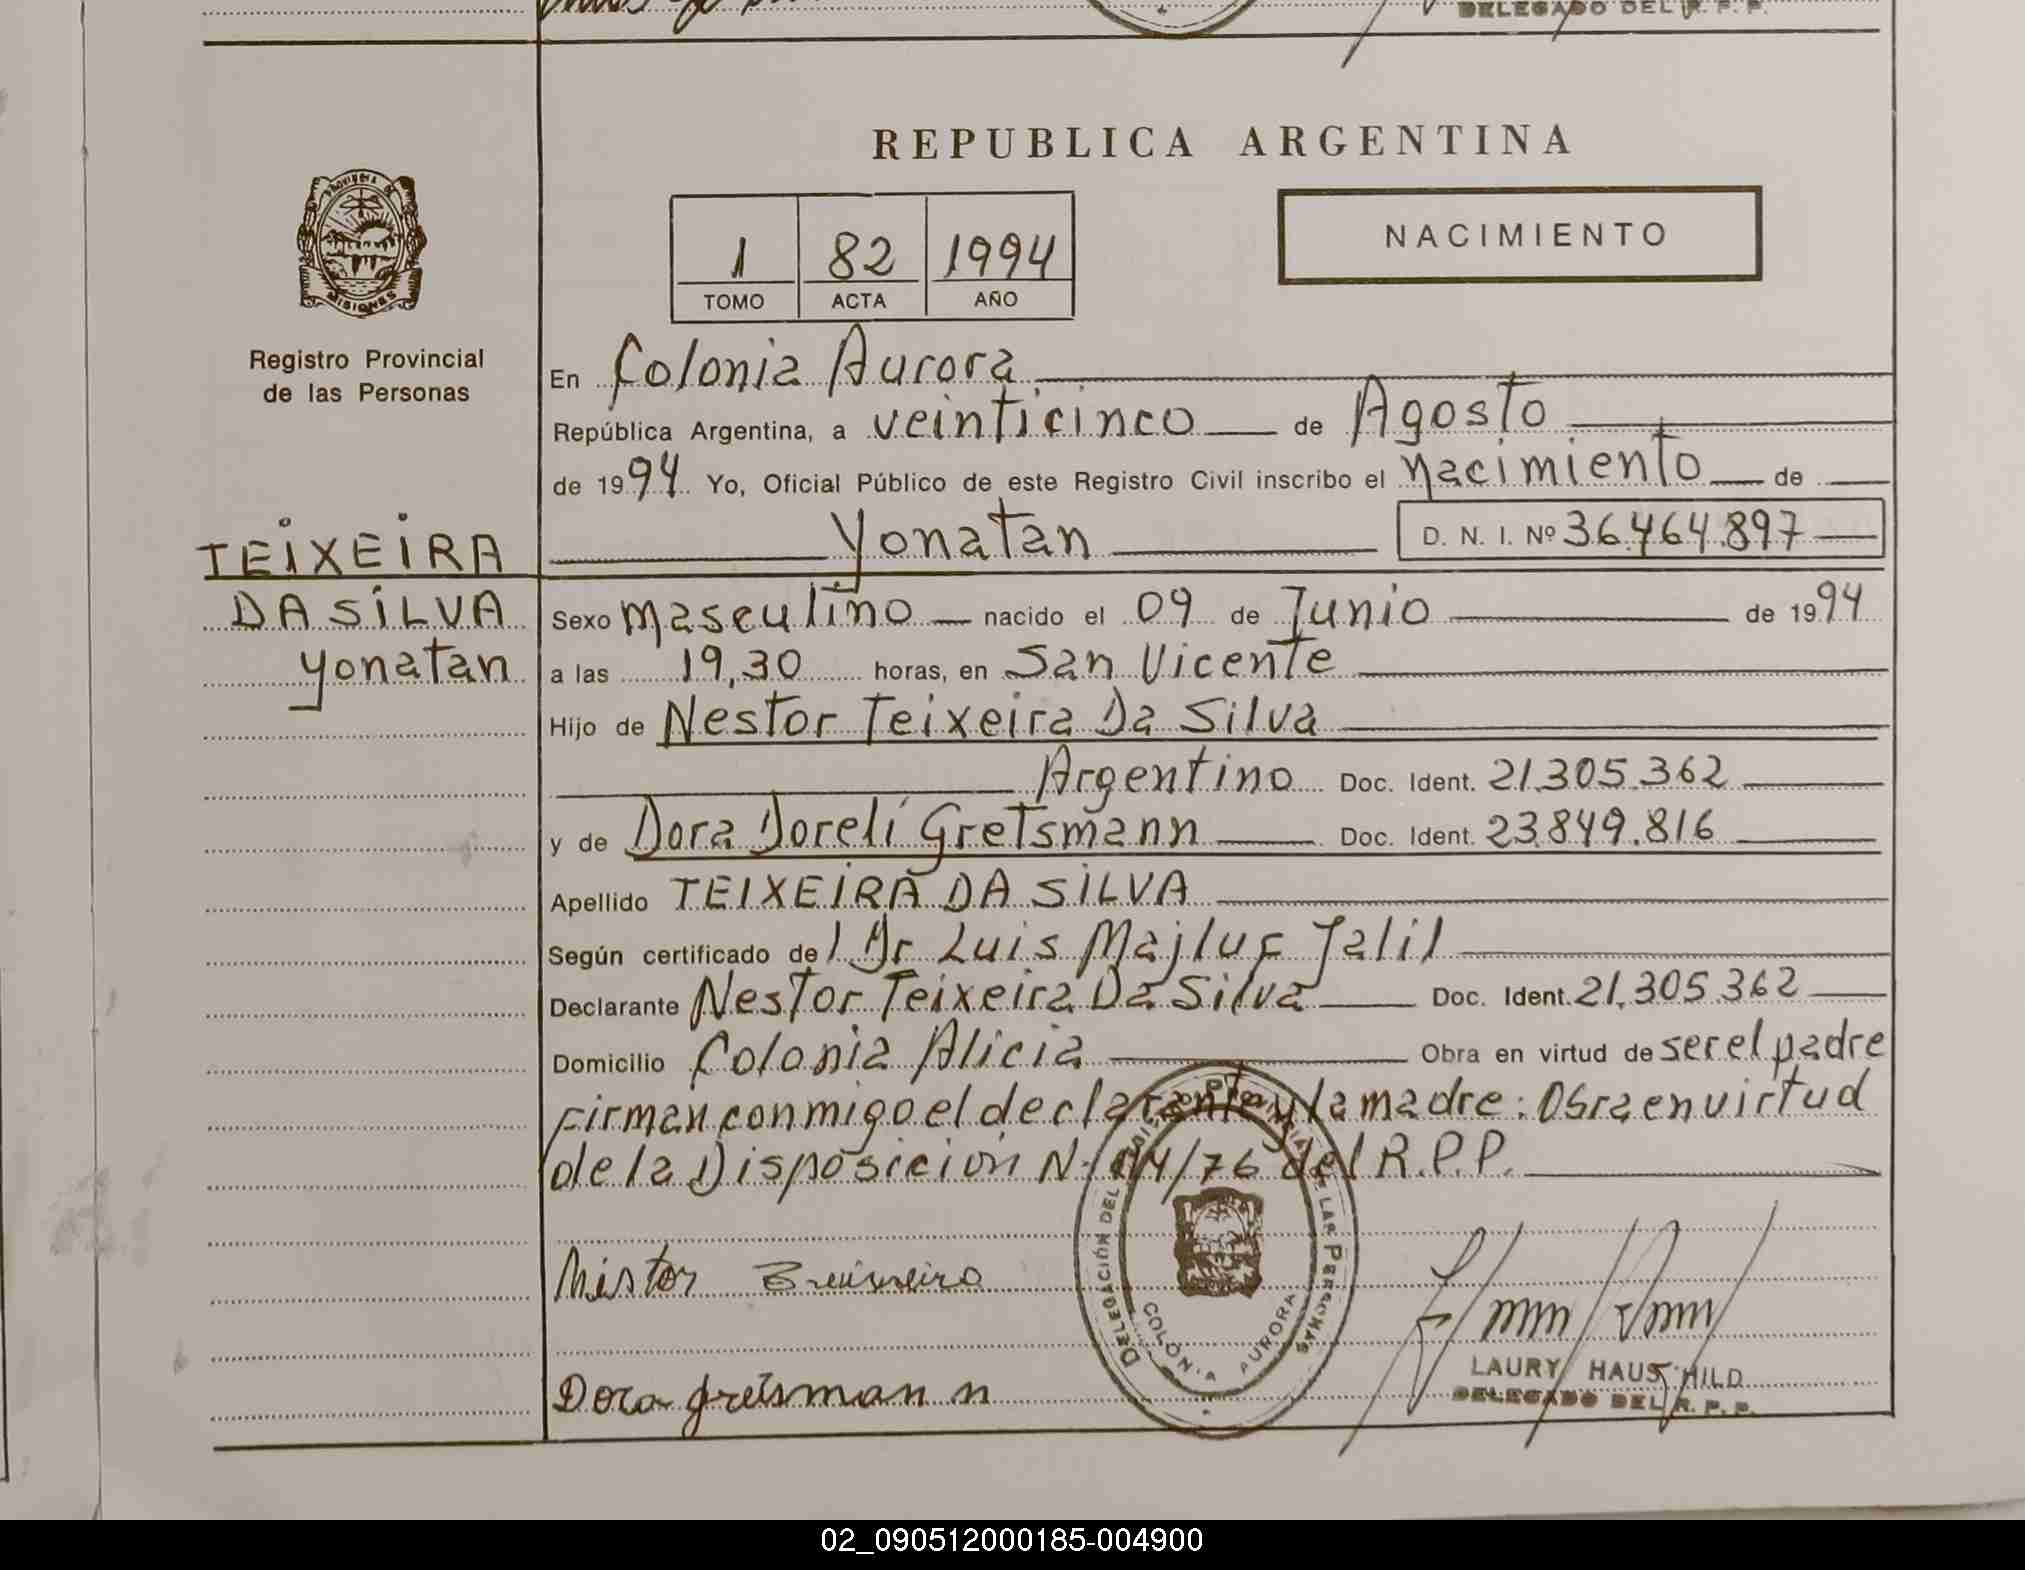 DELEGADO DEL R. P. P.
REPUBLICA ARGENTINA
PROVINCIA DE
MISIONES
1 82 1994
TOMO ACTA AÑO
NACIMIENTO
Registro Provincial
de las Personas
En Colonia Aurora
República Argentina, a veinticinco de Agosto
de 1994 Yo, Oficial Público de este Registro Civil inscribo el Nacimiento de
Yonatan D. N. I. Nº 36.464.897
TEIXEIRA
DA SILVA
Yonatan
Sexo masculino nacido el 09 de Junio de 1994
a las 19,30 horas, en San Vicente
Hijo de Nestor Teixeira Da Silva
Argentino Doc. Ident. 21.305.362
y de Dora Dorelí Gretsmann Doc. Ident. 23.849.816
Apellido TEIXEIRA DA SILVA
Según certificado del Dr Luis Majluf Jalil
Declarante Nestor Teixeira Da Silva Doc. Ident. 21.305.362
Domicilio Colonia Alicia Obra en virtud de ser el padre
Firman conmigo el declarante y la madre: Obra en virtud
de la Disposición N· /76 del R.P.P.
DELEGACIÓN DEL REGISTRO PROVINCIAL DE LAS PERSONAS
COLONIA AURORA
Nistor
Dora Gretsmann
LAURY HAUSCHILD
DELEGADO DEL R. P. P.
02_090512000185-004900